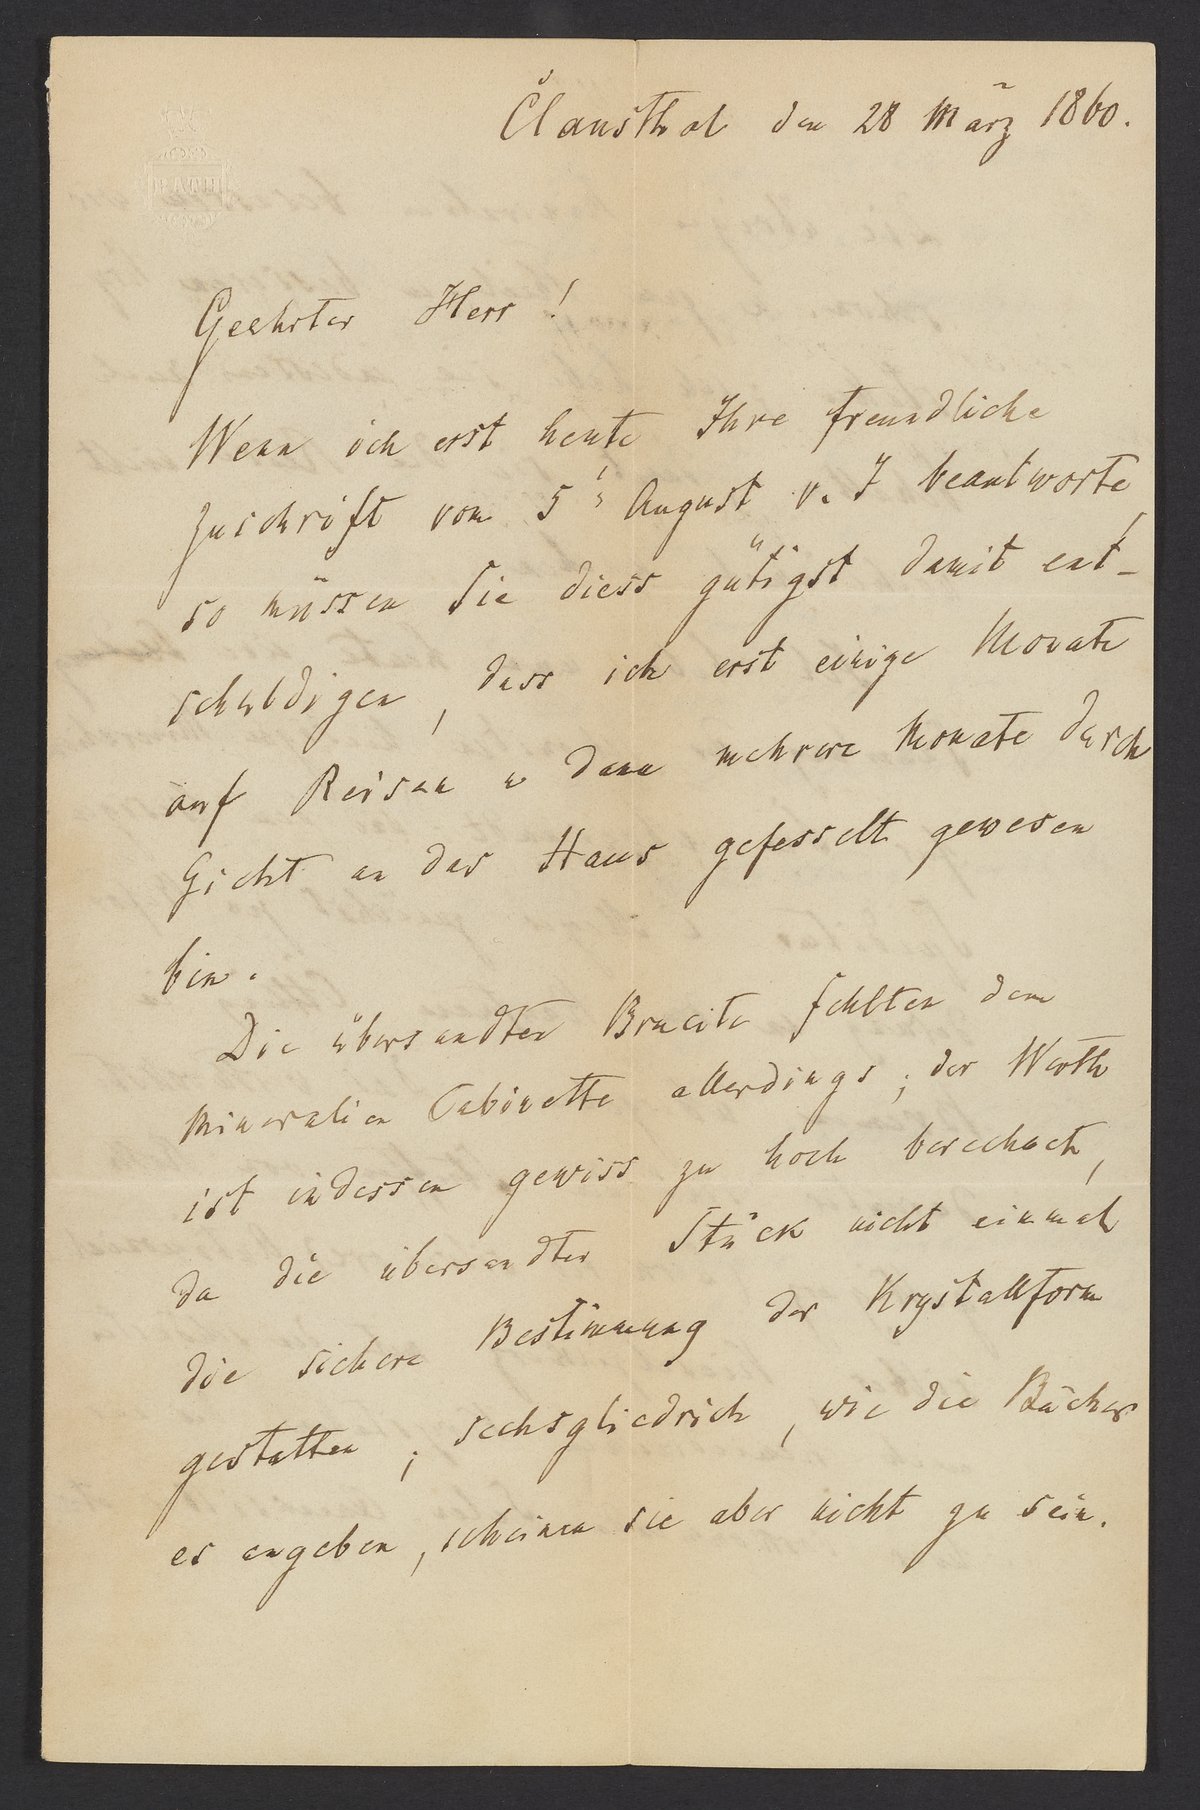 Clausthal den 28 März 1860.
Geehrter Herr!
Wenn ich erst heute Ihre freundliche
Zuschrift vom 5 August v. J beantworte,
so müssen Sie diess gütigst damit ent-
schuldigen, dass ich erst einige Monate
auf Reisen u dann mehrere Monate durch
Gicht an das Haus gefesselt gewesen
bin.
Die übersandten Brucite fehlten dem
Mineralien Cabinette allerdings; der Werth
ist indessen gewiss zu hoch berechnet,
da die übersandten Stück nicht einmal
die sichere Bestimmung der Krystallform
gestatten; sechsgliedrich, wie die Bücher
es angeben, scheinen sie aber nicht zu sein.